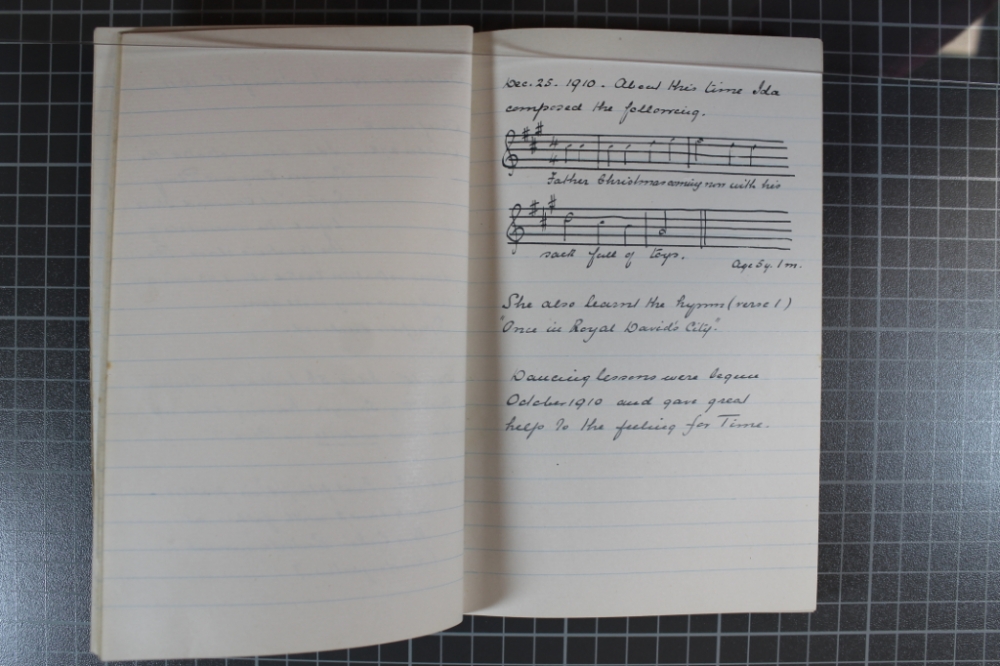 Dec. 25. 1910. About this time Ida
composed the following.
4
4
Father Christmas coming now with his
sack full of toys.
Age 5 y. 1 m.
She also learnt the hymn (verse 1)
"Once in Royal David's City".
Dancing lessons were begun
October 1910 and gave great
help to the feeling for Time.